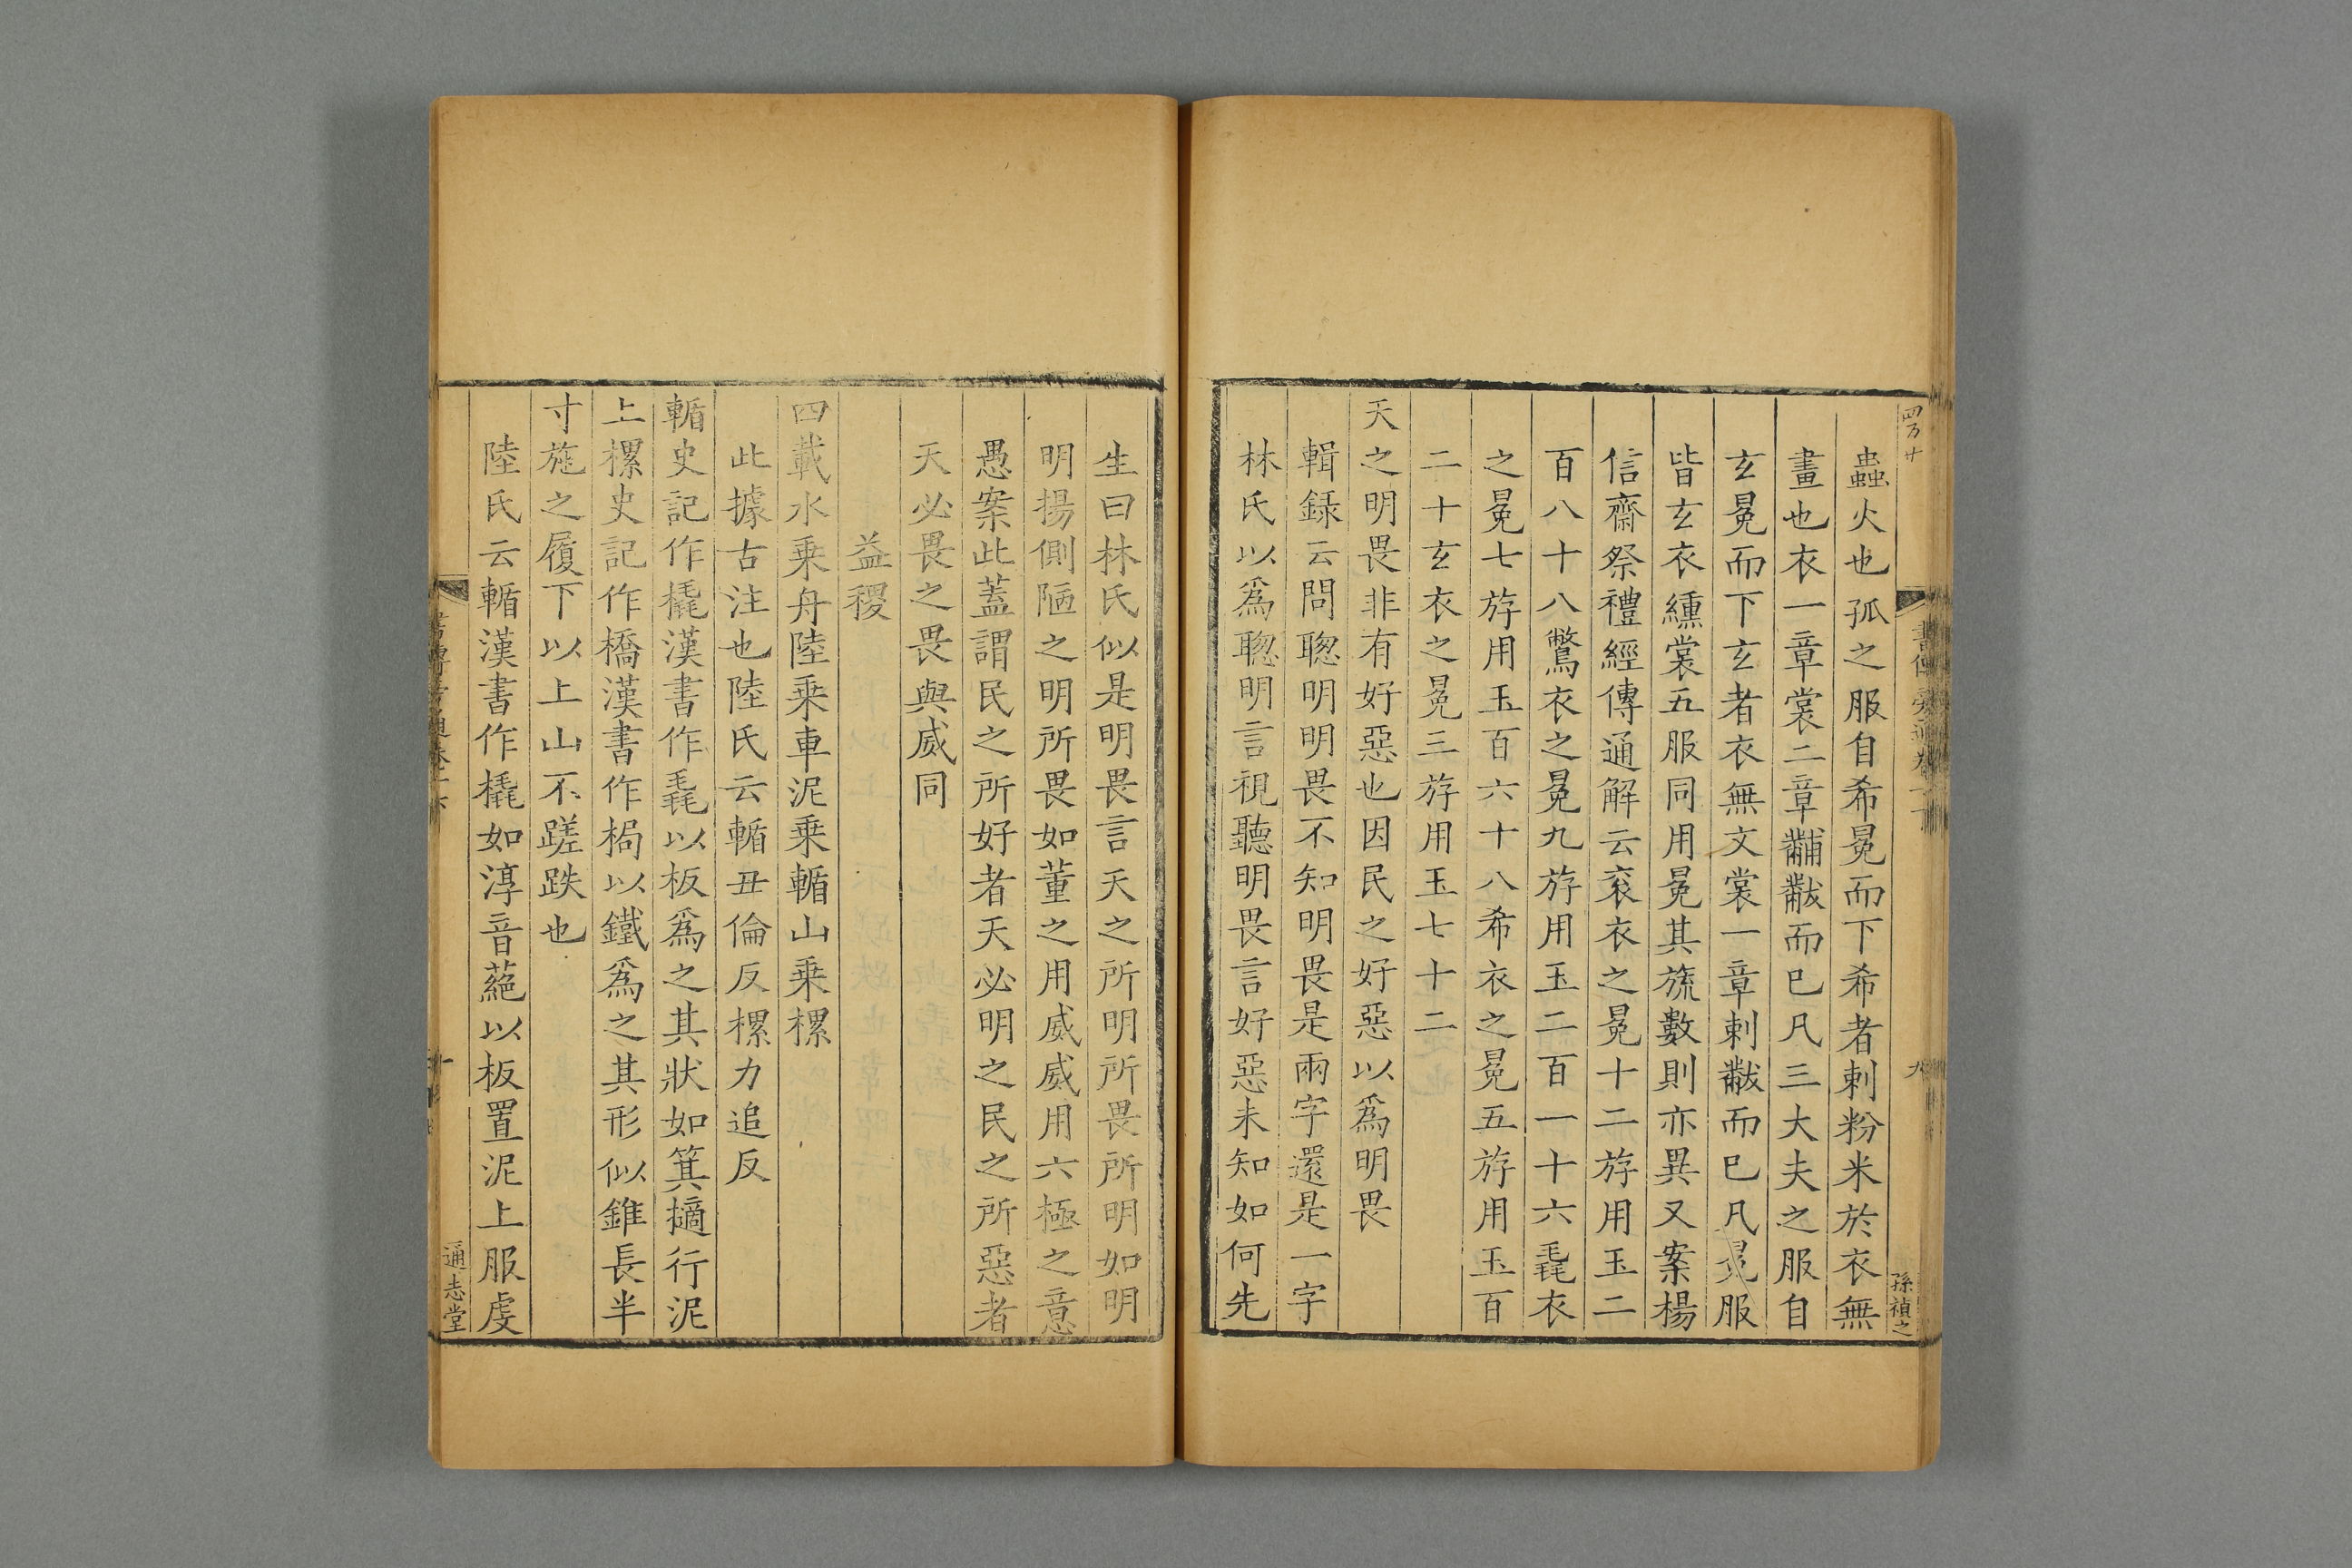 蟲火也孤之服自希冕而下希者刺粉米於衣無
畫也衣一章裳二章黼黻而已凡三大夫之服自
玄冕而下玄者衣無文裳一章刺黻而已凡冕服
皆玄衣纁裳五服同用冕其旒數則亦異又案楊
信齋祭禮經傳通解云衮衣之冕十二斿用玉二
百八十八鷩衣之冕九斿用玉二百一十六毳衣
之冕七斿用玉百六十八希衣之冕五斿用玉百
二十玄衣之冕三斿用玉七十二
天之明畏非有好惡也因民之好惡以爲明畏
輯録云問聦明明畏不知明畏是兩字還是一字
林氏以爲聦明言視聽明畏言好惡未知如何先
生曰林氏似是明畏言天之所明所畏所明如明
明揚側陋之明所畏如董之用威威用六極之意
愚案此蓋謂民之所好者天必明之民之所惡者
天必畏之畏與威同
益稷
四載水乘舟陸乘車泥乘輴山乘樏
此據古注也陸氏云輴丑倫反樏力追反
輴史記作橇漢書作毳以板爲之其狀如箕擿行泥
上樏史記作橋漢書作梮以鐵爲之其形似錐長半
寸施之履下以上山不蹉跌也
陸氏云輴漢書作橇如淳音蕝以板置泥上服虔
通志堂
孫禎之
九
十